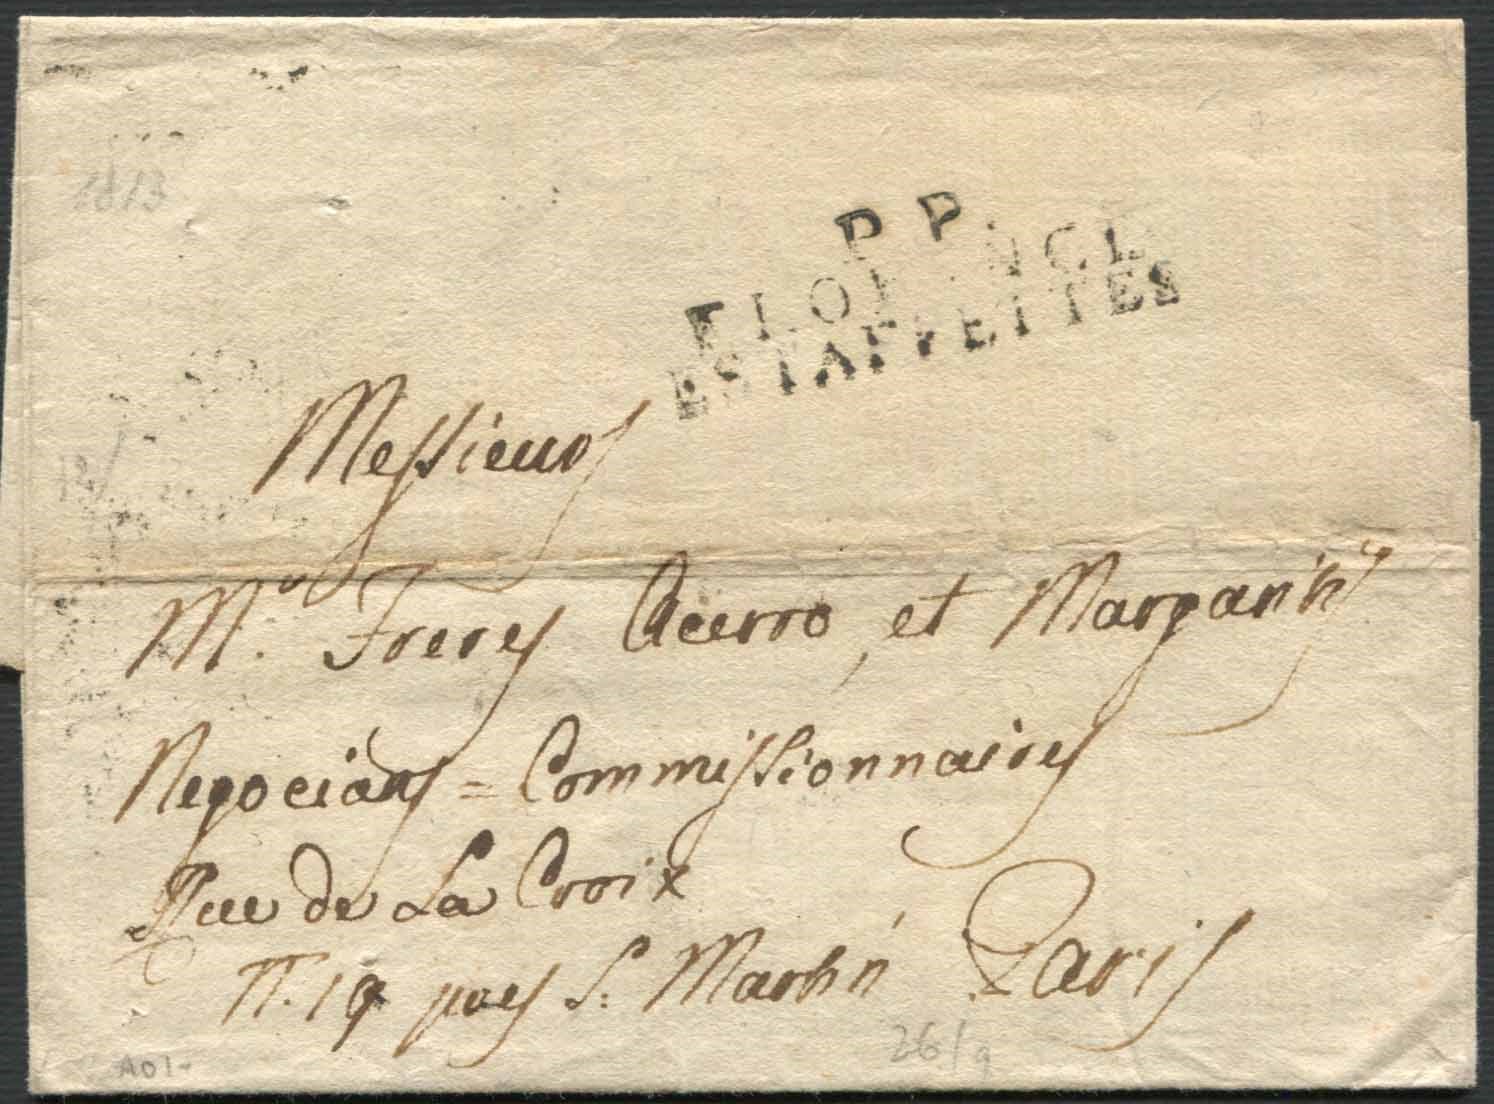 1813
P P
FLORENCE
ESTAFFETTES
Messieurs
Mrs. Freres Acerro, et Margarih
Negocians = Commissionnaires
Rue de La Croix
N. 19 pres S: Martin Paris
26/9
A01-